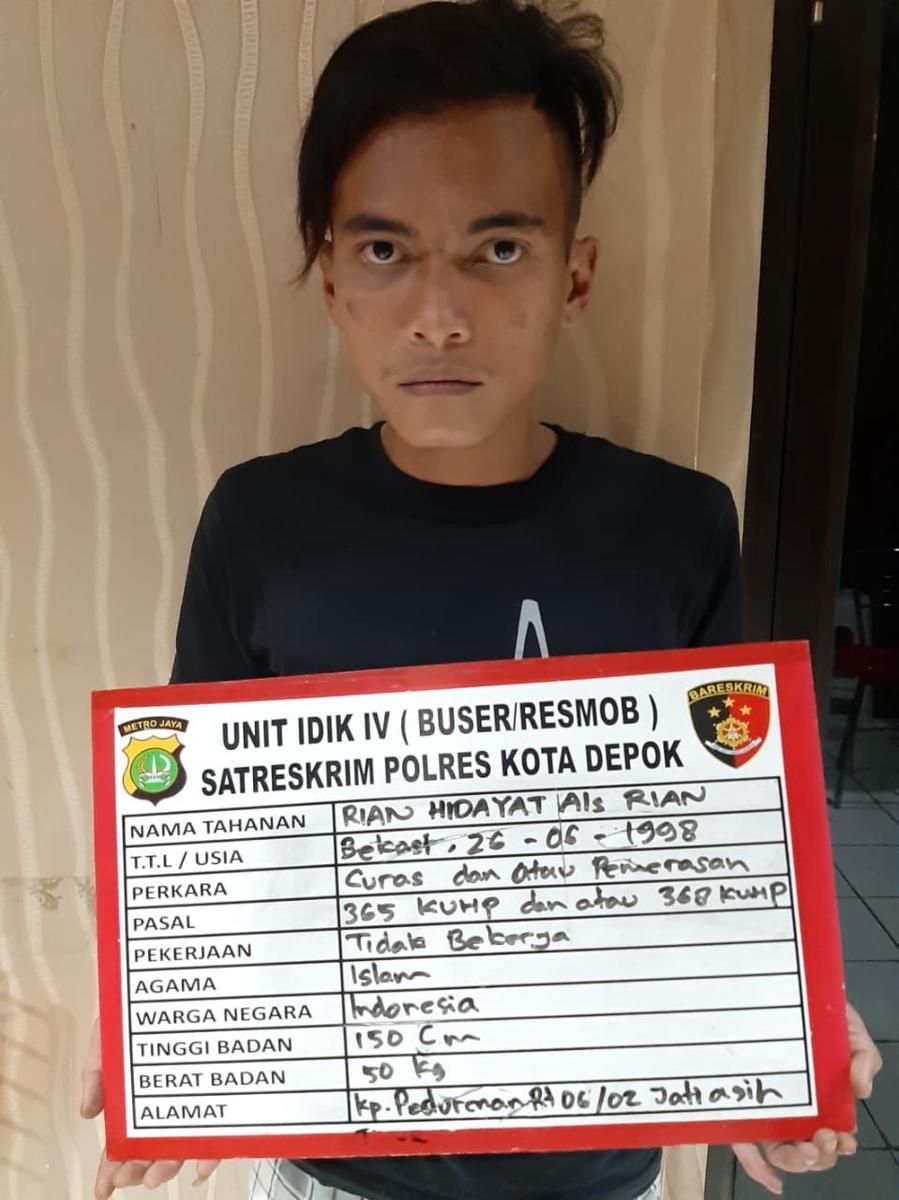 METRO JAYA
BARESKRIM
UNIT IDIK IV ( BUSER/RESMOB )
SATRESKRIM POLRES KOTA DEPOK
NAMA TAHANAN RIAN HIDAYAT Als RIAN
T.T.L / USIA Bekasi, 26 - 06 - 1998
PERKARA Curas dan Atau Pemerasan
PASAL 365 KUHP dan atau 368 KUHP
PEKERJAAN Tidak Bekerja
AGAMA Islam
WARGA NEGARA Indonesia
TINGGI BADAN 150 Cm
BERAT BADAN 50 Kg
ALAMAT Kp. Pedurenan Rt 06/02 Jatiasih